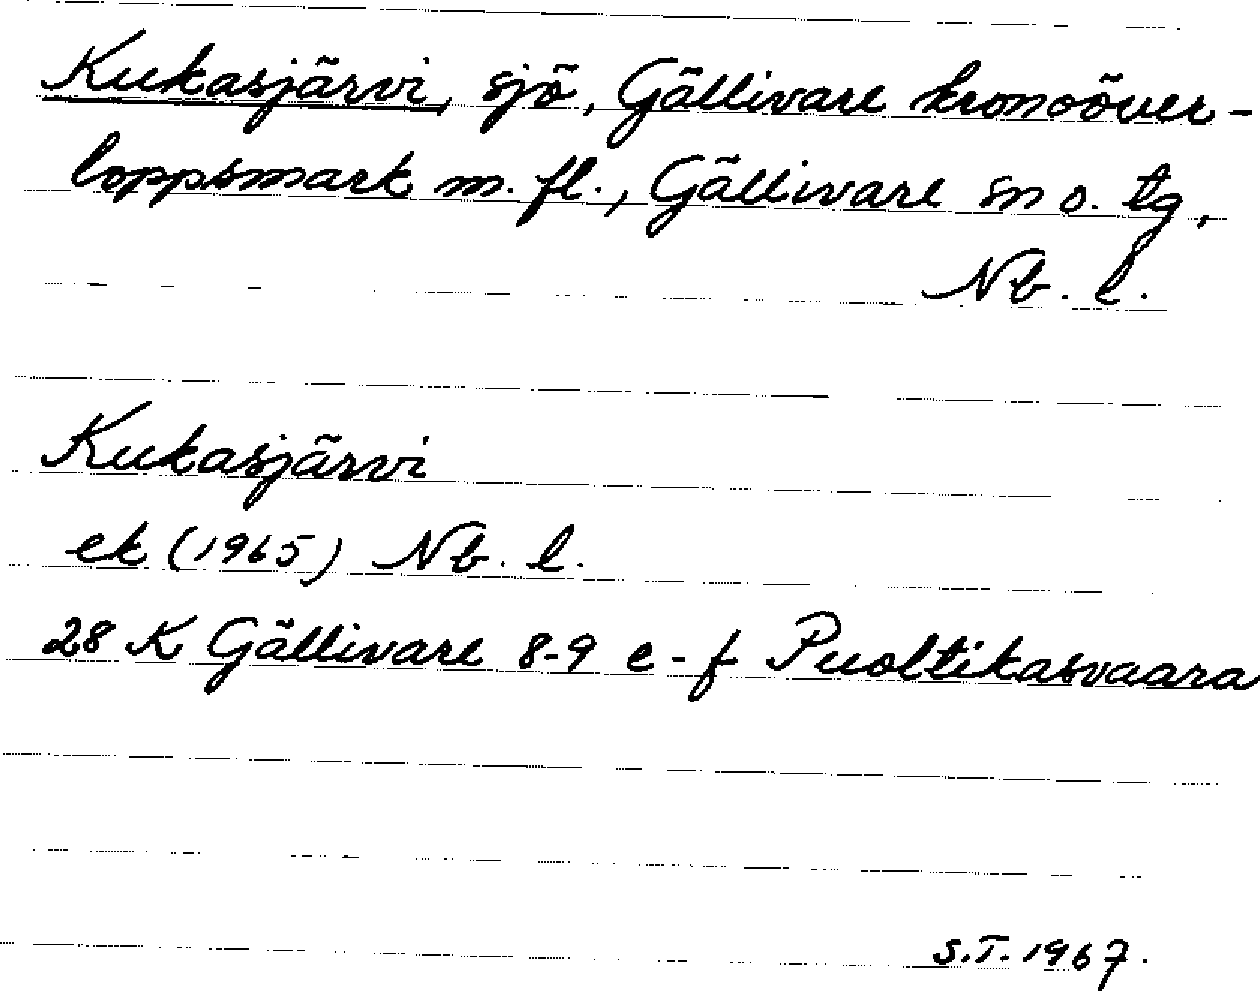 Kukasjärvi, sjö, Gällivare kronoöver-
loppsmark m. fl., Gällivare sn o. tg,
Nb. l.
Kukasjärvi
ek (1965) Nb. l.
28 K Gällivare 8-9 e-f Puoltikasvaara
S.T. 1967.